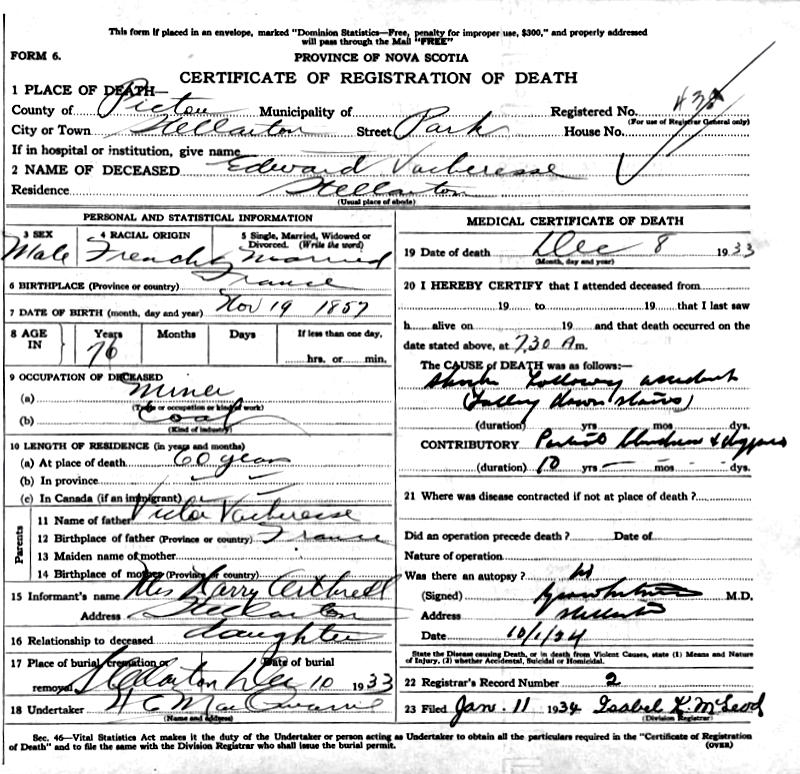 This form if placed in an envelope, marked "Dominion Statistics—Free, penalty for improper use, $300," and properly addressed
will pass through the Mail "FREE"
FORM 6.
PROVINCE OF NOVA SCOTIA
CERTIFICATE OF REGISTRATION OF DEATH
1 PLACE OF DEATH—
County of Pictou Municipality of Registered No. 438
(For use of Registrar General only)
City or Town Stellarton Street Park House No.
If in hospital or institution, give name
2 NAME OF DECEASED Edward Vacheresse
Residence Stellarton
(Usual place of abode)
PERSONAL AND STATISTICAL INFORMATION
3 SEX 4 RACIAL ORIGIN 5 Single, Married, Widowed or Divorced. (Write the word)
Male French Married
6 BIRTHPLACE (Province or country) France
7 DATE OF BIRTH (month, day and year) Nov 19 1857
8 AGE IN Years Months Days If less than one day,
76 hrs. or min.
9 OCCUPATION OF DECEASED
(a) Miner
(Trade or occupation or kind of work)
(b) Coal
(Kind of industry)
10 LENGTH OF RESIDENCE (in years and months)
(a) At place of death 60 years
(b) In province " "
(c) In Canada (if an immigrant) " "
Parents
11 Name of father Victor Vacheresse
12 Birthplace of father (Province or country) France
13 Maiden name of mother
14 Birthplace of mother (Province or country)
15 Informant's name Mrs Harry
Address Stellarton
16 Relationship to deceased daughter
17 Place of burial, cremation or removal Date of burial
Stellarton Dec 10 1933
18 Undertaker
(Name and address)
MEDICAL CERTIFICATE OF DEATH
19 Date of death Dec 8 1933
(Month, day and year)
20 I HEREBY CERTIFY that I attended deceased from
19 to 19 that I last saw
h alive on 19 and that death occurred on the
date stated above, at 7.30 A m.
The CAUSE of DEATH was as follows:—
Shock following accident
(Falling down stairs)
(duration) yrs mos dys.
CONTRIBUTORY Partial blindness &
(duration) 10 yrs — mos — dys.
21 Where was disease contracted if not at place of death?
Did an operation precede death? Date of
Nature of operation
Was there an autopsy? No
(Signed) M.D.
Address Stellarton
Date 10/1/34
State the Disease causing Death, or in death from Violent Causes, state (1) Means and Nature
of Injury, (2) whether Accidental, Suicidal or Homicidal.
22 Registrar's Record Number 2
23 Filed Jan. 11 1934 Isabel K. McLeod
(Division Registrar)
Sec. 46—Vital Statistics Act makes it the duty of the Undertaker or person acting as Undertaker to obtain all the particulars required in the "Certificate of Registration
of Death" and to file the same with the Division Registrar who shall issue the burial permit. (OVER)